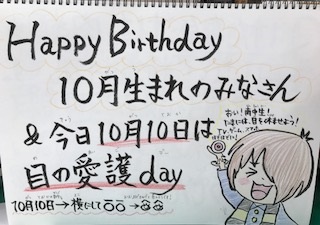 Happy Birthday
10月生まれのみなさん
& 今日10月10日は
目の愛護day
10月10日→横にして
おい!
たまには、目を休ませよう!
TV、ゲーム、スマホ